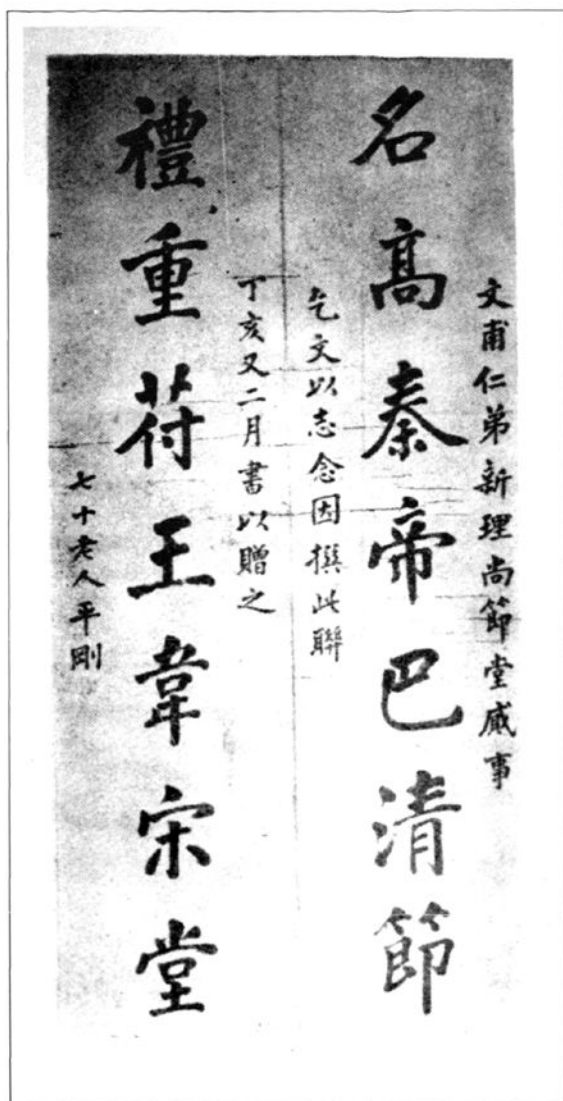 文甫仁弟新理尚節堂事
名髙秦帝巴清節
乞文以志念因撰此聯
丁亥又二月書以贈之
禮重苻王韋宋堂
七十老人平剛